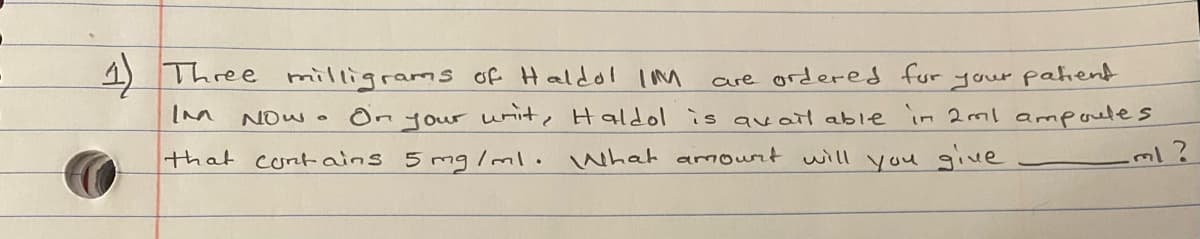 1) Three milligrams of Haldol IM are ordered for your patient
IM NOW. On your unit, Haldol is available in 2ml ampoules
that contains 5mg/ml. What amount will you give ____ ml?